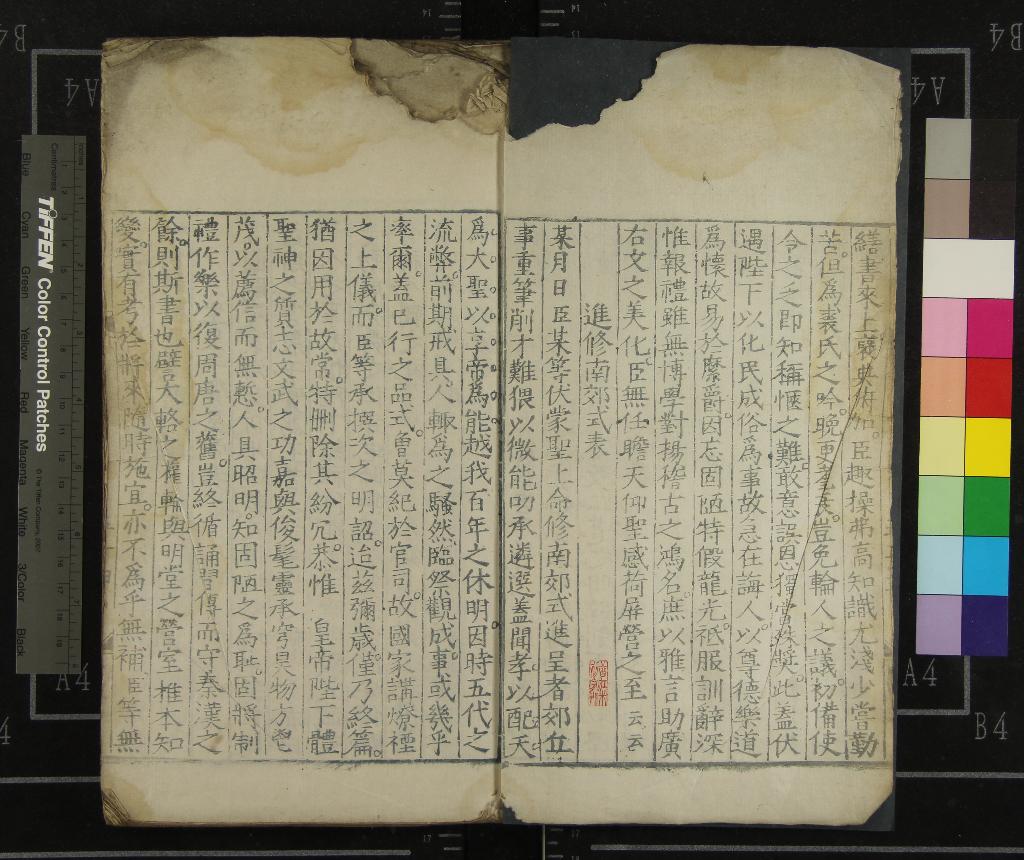 繕書來上褒典加臣趣操弗高知識尤淺少嘗勤
苦但爲裘氏之吟晚更耄豈免輪人之議初備使
令之乏即知稱愜之難敢意誤恩獨當殊奬此蓋伏
遇陛下以化民成俗爲事故急在誨人以尊德樂道
爲懷故易於縻爵因忘固陋特假龍光祗服訓辭深
惟報禮雖無博學對揚稽古之鴻名庶以雅言助廣
右文之美化臣無任瞻天仰聖感荷屏營之至云云
進修南郊式表
某月日臣某等伏蒙聖上命修南郊式進呈者郊丘
事重筆削才難猥以微能叨承遴選蓋聞孝以配天
爲大聖以享帝爲能越我百年之休明因時五代之
流弊前期戒具人輙爲之騷然臨祭觀成事或幾乎
率爾蓋已行之品式曾莫紀於官司故國家講燎禋
之上儀而臣等承撰次之明詔迨茲彌歲僅乃終篇
猶因用於故常特刪除其紛冗恭惟 皇帝陛下體
聖神之質志文武之功嘉與俊髦靈承穹昊物方鬯
茂以薦信而無慙人具昭明知固陋之爲耻固將制
禮作樂以復周唐之舊豈終循誦習傳而守秦漢之
餘則斯書也譬大輅之椎輪與明堂之營室推本知
變實有考於將來隨時施宜亦不爲乎無補臣等無
TIFFEN Color Control Patches
© The Tiffen Company, 2007
Centimetres
Inches
Blue Cyan Green Yellow Red Magenta White 3/Color Black
A4
A4
A4
A4
B4
B4
B4